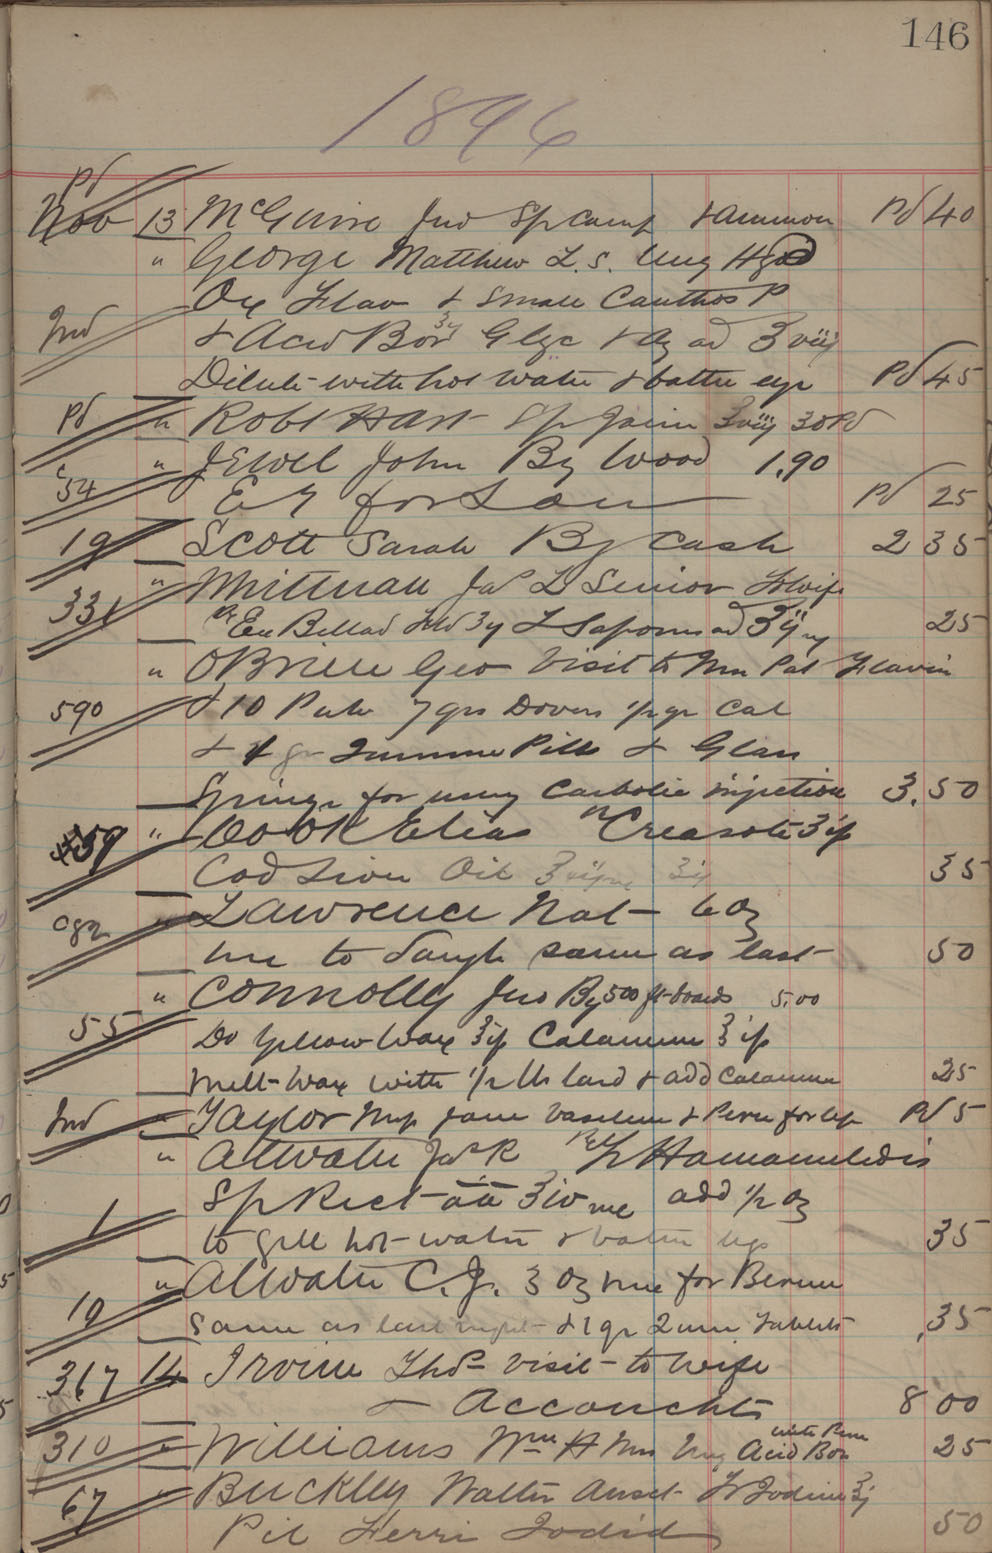 146
1896
Pd
Nov 13 McGuire Jno Sp Camp & Ammon Pd 40
" George Matthew L.S. Ung
Ox Flav & Small Canthos P
Ind & Acid Bor Glyc & Aq ad ʒ viij
Dilute with hot water & bathe eye Pd 45
Pd " Robt Hart Sp ʒ viij 30 Pd
54 " Jewel John By Wood 1.90
for Son Pd 25
19 Scott Sarah By Cash 2 35
331 " Whitman Jas L Senior wife
Ex Bellad ad 25
" OBrien Geo Visit to Mrs Pat Flavin
590 & 10 Pulv 7 grs Dovers 1/2 gr Cal
& 4 gr Quinine Pills & Glass
Syringe for using Carbolic injection 3.50
59 " Cook Elias Creasote
Cod Liver Oil 35
82 " Lawrence Nat 6 oz
me to Daugh same as last 50
" Connolly Jno By 500 ft boards 5.00
55 Do Yellow Wax Calamine
Melt Wax with 1/2 lb lard & add Calamine 25
Ind " Taylor Mrs Jane Vaseline & for Pd 5
" Atwater Jas R Hamamelidis
1 Sp Rect aa ʒ iv me add 1/2 oz
to gill hot water & bathe 35
" Atwater C. Jr. 3 oz me for
19 Same as last night & 1 gr Quin Tablets .35
317 14 Irvine Thos Visit to Wife
& Accoucht 8 00
310 " Williams Wm H Mrs Ung Acid Bor with 25
67 " Buckley Walter Tr Iodine
Pil Ferri Iodid 50